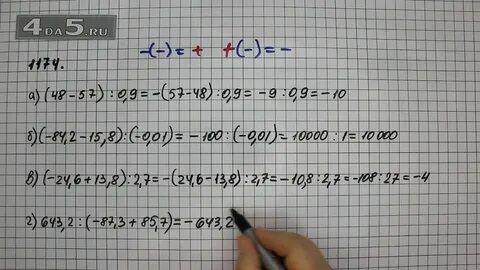 4DA5.RU
-(-) = +   +(-) = -
1174.
а) (48-57) : 0,9 = -(57-48) : 0,9 = -9 : 0,9 = -10
б) (-84,2-15,8) : (-0,01) = -100 : (-0,01) = 10000 : 1 = 10000
в) (-24,6+13,8) : 2,7 = -(24,6-13,8) : 2,7 = -10,8 : 2,7 = -108 : 27 = -4
г) 643,2 : (-87,3 + 85,7) = -643,2